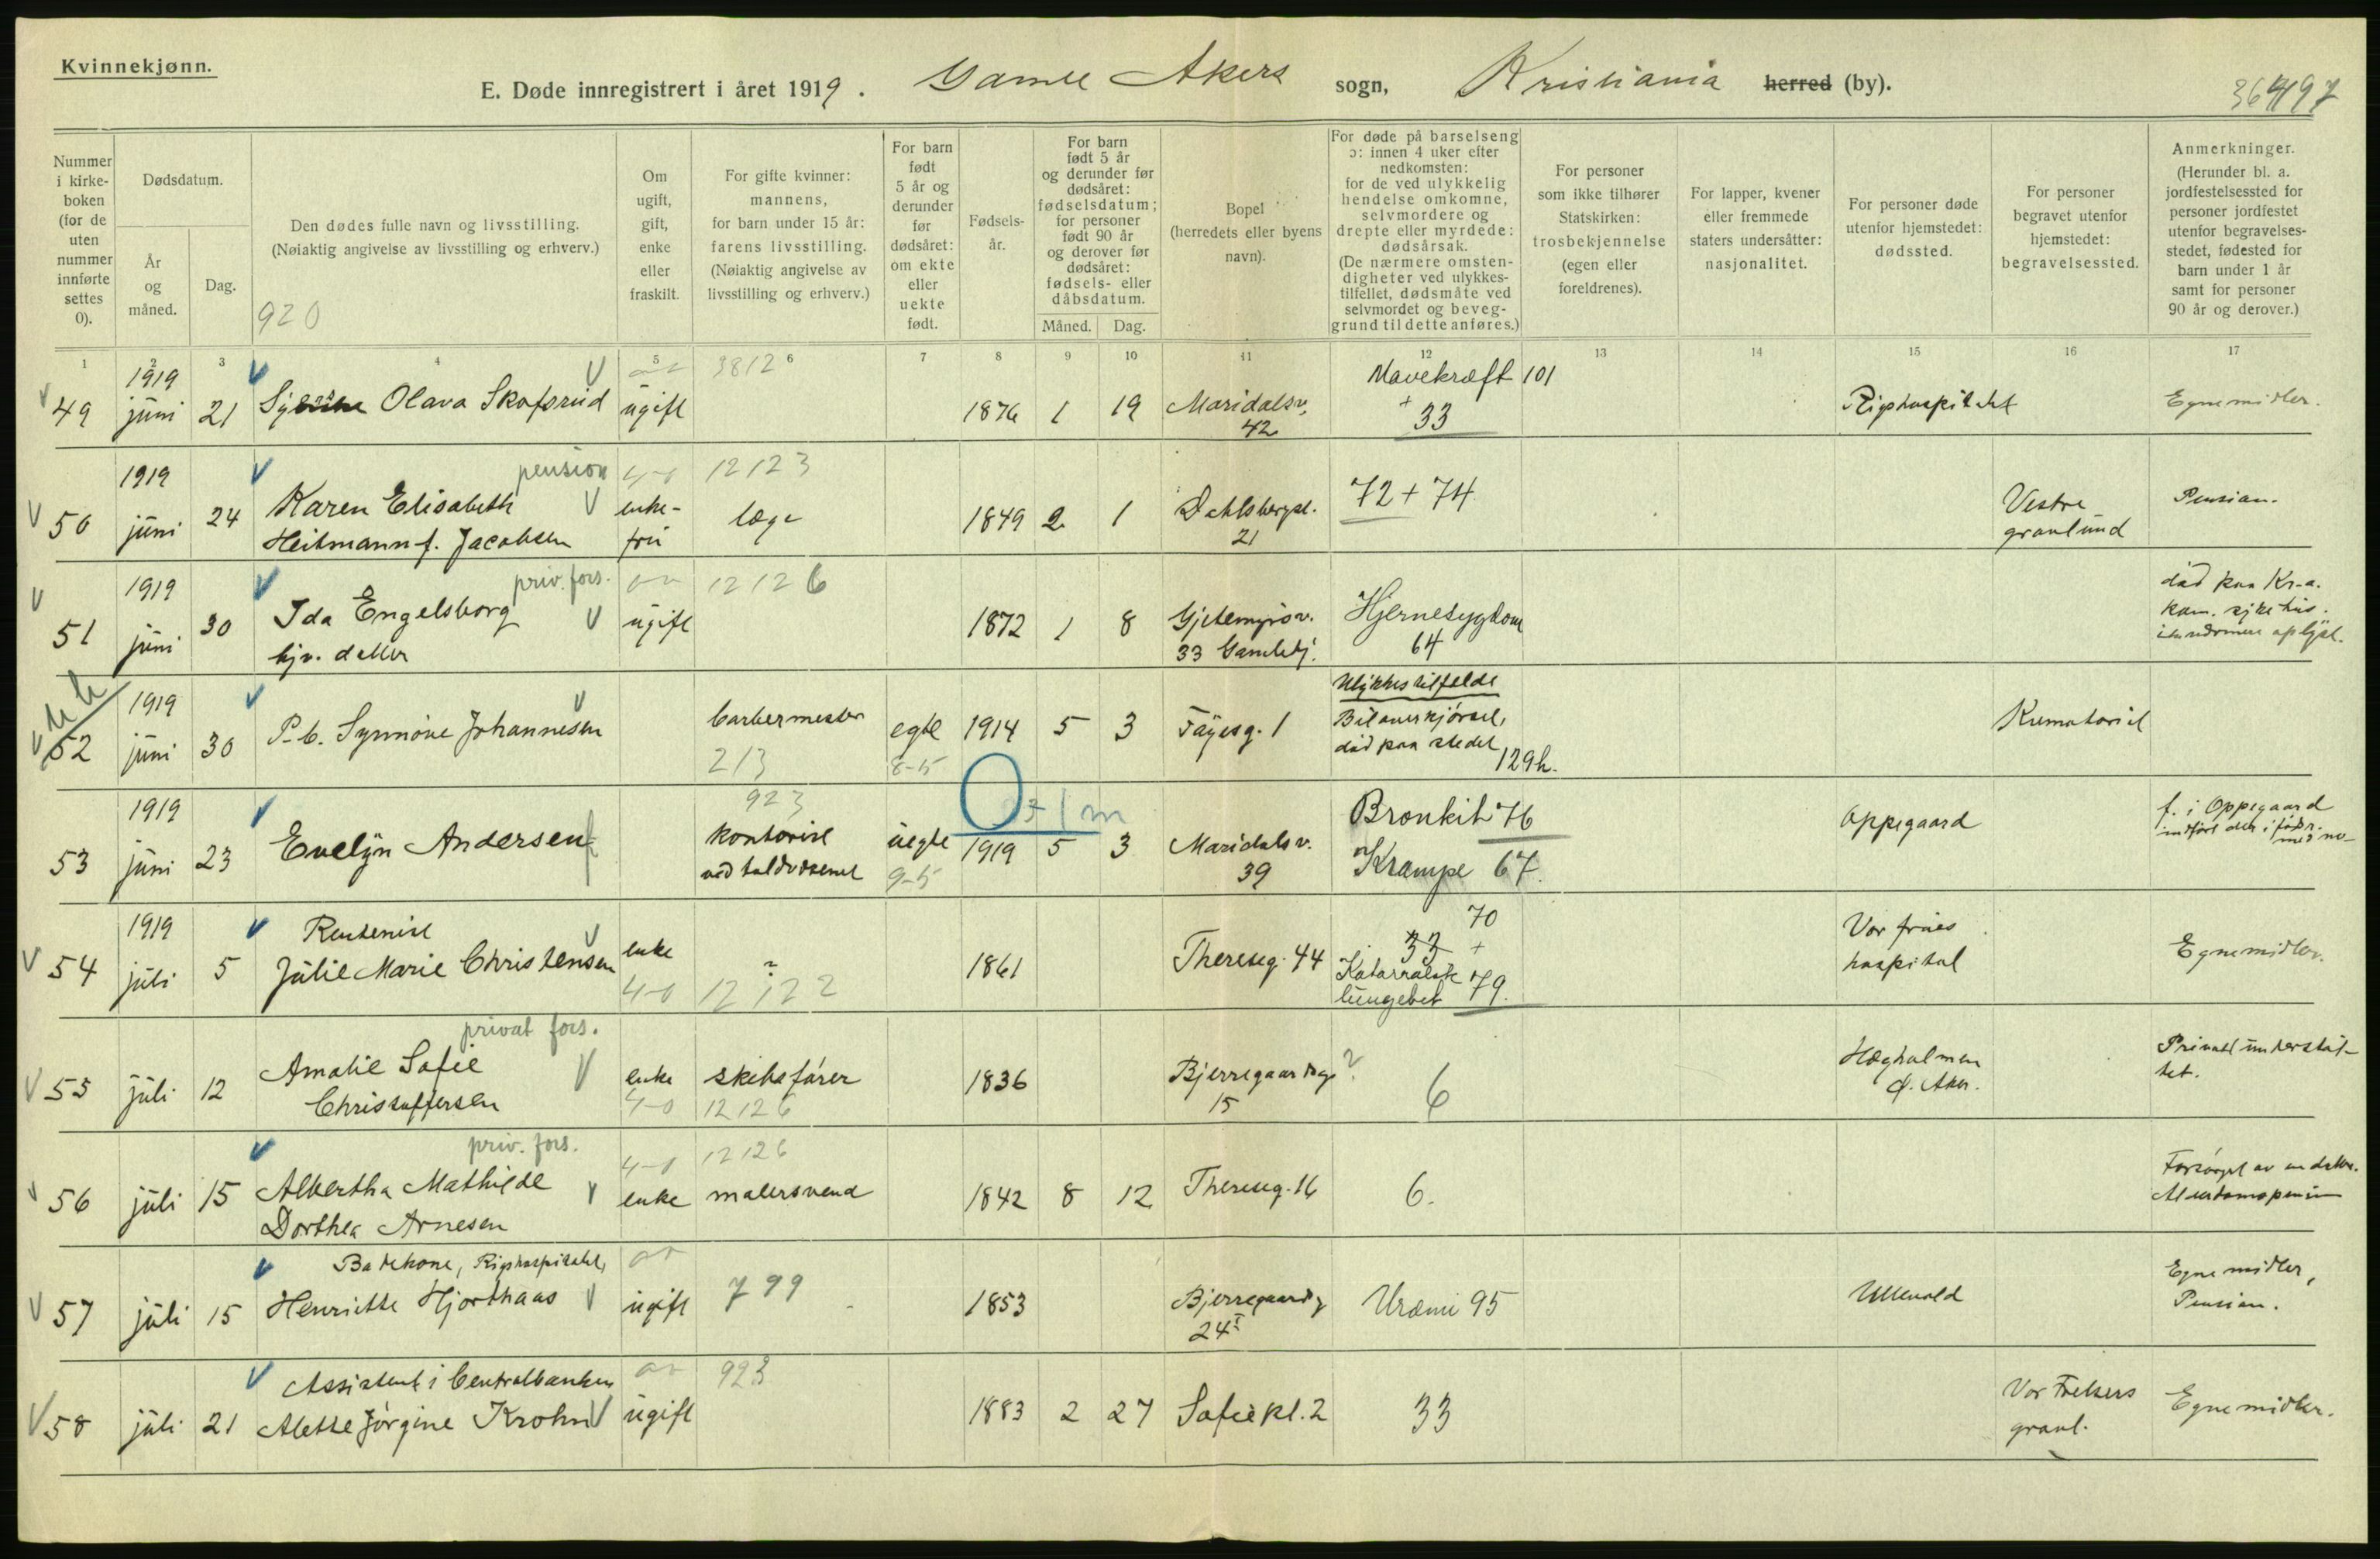 Kvinnekjønn.
E. Døde innregistrert i året 1919. Gamle Akers sogn, Kristiania herred (by).
Nummer i kirke-boken (for de uten nummer innførte settes 0).
Dødsdatum.
År og måned.
Dag.
Den dødes fulle navn og livsstilling.
(Nøiaktig angivelse av livsstilling og erhverv.)
920
Om ugift, gift, enke eller fraskilt.
For gifte kvinner: mannens, for barn under 15 år: farens livsstilling. (Nøiaktig angivelse av livsstilling og erhverv.)
For barn født 5 år og derunder før dødsåret: om ekte eller uekte født.
Fødsels-år.
For barn født 5 år og derunder før dødsåret: fødselsdatum; for personer født 90 år og derover før dødsåret: fødsels- eller dåbsdatum.
Måned. Dag.
Bopel (herredets eller byens navn).
For døde på barselseng ɔ: innen 4 uker efter nedkomsten: for de ved ulykkelig hendelse omkomne, selvmordere og drepte eller myrdede: dødsårsak. (De nærmere omsten-digheter ved ulykkes-tilfellet, dødsmåte ved selvmordet og beveg-grund til dette anføres.)
For personer som ikke tilhører Statskirken: trosbekjennelse (egen eller foreldrenes).
For lapper, kvener eller fremmede staters undersåtter: nasjonalitet.
For personer døde utenfor hjemstedet: dødssted.
For personer begravet utenfor hjemstedet: begravelsessted.
Anmerkninger. (Herunder bl. a. jordfestelsessted for personer jordfestet utenfor begravelses-stedet, fødested for barn under 1 år samt for personer 90 år og derover.)
1 2 3 4 5 6 7 8 9 10 11 12 13 14 15 16 17
49 1919 juni 21 Olava Skafsrud ugift 3812 1876 1 19 Maridalsv. 42 Mavekræft 101 + 33 Rigshospitalet Egne midler.
50 1919 juni 24 pension Karen Elisabeth Heitmann f. Jacobsen 4-0 enke-fru 12123 læge 1849 2 1 Dahlsbergst. 21 72 + 74 Vestre gravlund Pension.
51 1919 juni 30 priv. fors. Ida Engelsborg hjv. datter ugift 12126 1872 1 8 Gjetemyrsv. 33 Gamlehj. Hjernesygdom 64 død paa Kr-a. kom. sykehus.
52 1919 juni 30 P. b. Synnøve Johannesen barbermester 213 egte 8-5 1914 5 3 Fayesg. 1 Ulykkestilfælde Biloverkjørsel, død paa stedet 129h. Krematoriet
53 1919 juni 23 Evelyn Andersen 923 kontorist ved toldvæsenet uegte 9-5 1919 5 3 Maridalsv. 39 Bronkit 76 Krampe 67. Oppegaard f. i Oppegaard
54 1919 juli 5 Rentenist Julie Marie Christensen enke 4-0 12122 1861 Thereseg. 44 33 + 70 Katarralsk lungebet 79. Vor frues hospital Egne midler.
55 juli 12 privat fors. Amalie Sofie Christoffersen enke 4-0 skibsfører 12126 1836 Bjerregaardsg 15 ? 6 Hægholmen Ø. Aker. Privat understøt-tet.
56 juli 15 priv. fors. Albertha Mathilde Dorthea Arnesen 4-0 enke 12126 malersvend 1842 8 12 Thereseg. 16 6. Forsørget av en datter. Alderdomspension
57 juli 15 Badekone, Rigshospitalet, Henriette Hjorthaas ugift 799 1853 Bjerregaardsg 24 I Uræmi 95 Ullevold Egne midler, Pension.
58 juli 21 Assistent i Centralbanken Alette Jørgine Krohn ugift 923 1883 2 27 Sofie pl. 2 33 Vor Frelsers gravl. Egne midler.